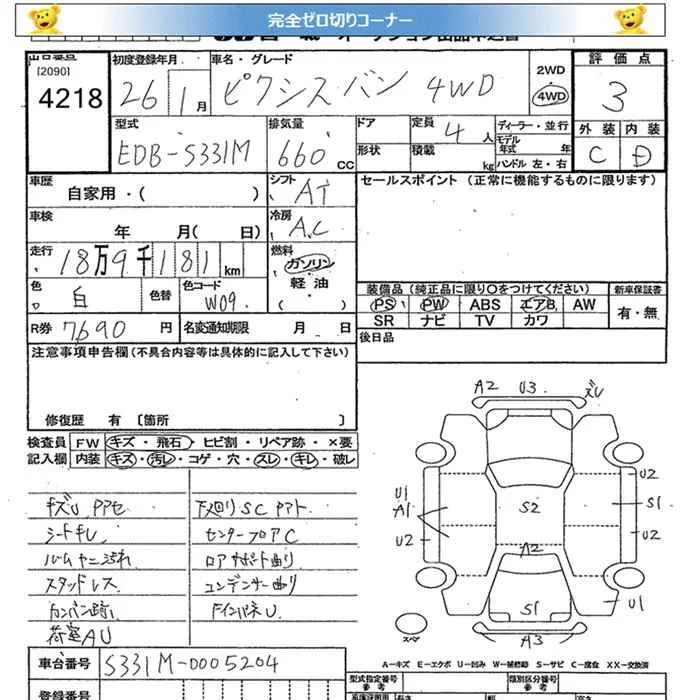 完全ゼロ切りコーナー
[2090]
4218
初度登録年月
26 1月
車名・グレード
ピクシスバン 4WD
2WD
4WD
評価点
3
型式
EDB-S331M
排気量
660 CC
ドア
定員
4 人
形状
積載
kg
ディーラー・並行
モデル年式 年
ハンドル 左・右
外装 内装
C D
車歴
自家用・( )
シフト
AT
セールスポイント (正常に機能するものに限ります)
車検
年 月( 日)
冷房
A,C
走行
18万9千181km
燃料
ガソリン
軽油
( )
色
白
色替
色コード
W09
装備品(純正品に限り○をつけてください)
PS PW ABS エアB AW
SR ナビ TV カワ
新車保証書
有・無
R券 7690円
名変通知期限 月 日
後日品
注意事項申告欄(不具合内容等は具体的に記入して下さい)
修復歴 有 〔箇所 〕
検査員記入欄
FW キズ・飛石・ヒビ割・リペア跡・×要
内装 キズ・汚レ・コゲ・穴・スレ・キレ・破レ
キズU Pアセ
下廻りSC Pアト
シートキレ
センターフロアC
ルームヤニ汚れ
ロアサポート曲り
スタッドレス
コンデンサー曲り
カンバン跡
FインパネU
荷室AU
A2 U3 ズレ
U1
A1
U2
S2
A2
S1
U2
S1
U2
U1
A3
スペ
A-キズ E-エクボ U-凹み W-補修跡 S-サビ C-腐食 XX-交換済
車台番号 S331M-0005204
登録番号
型式指定番号
参考
類別区分番号
参考